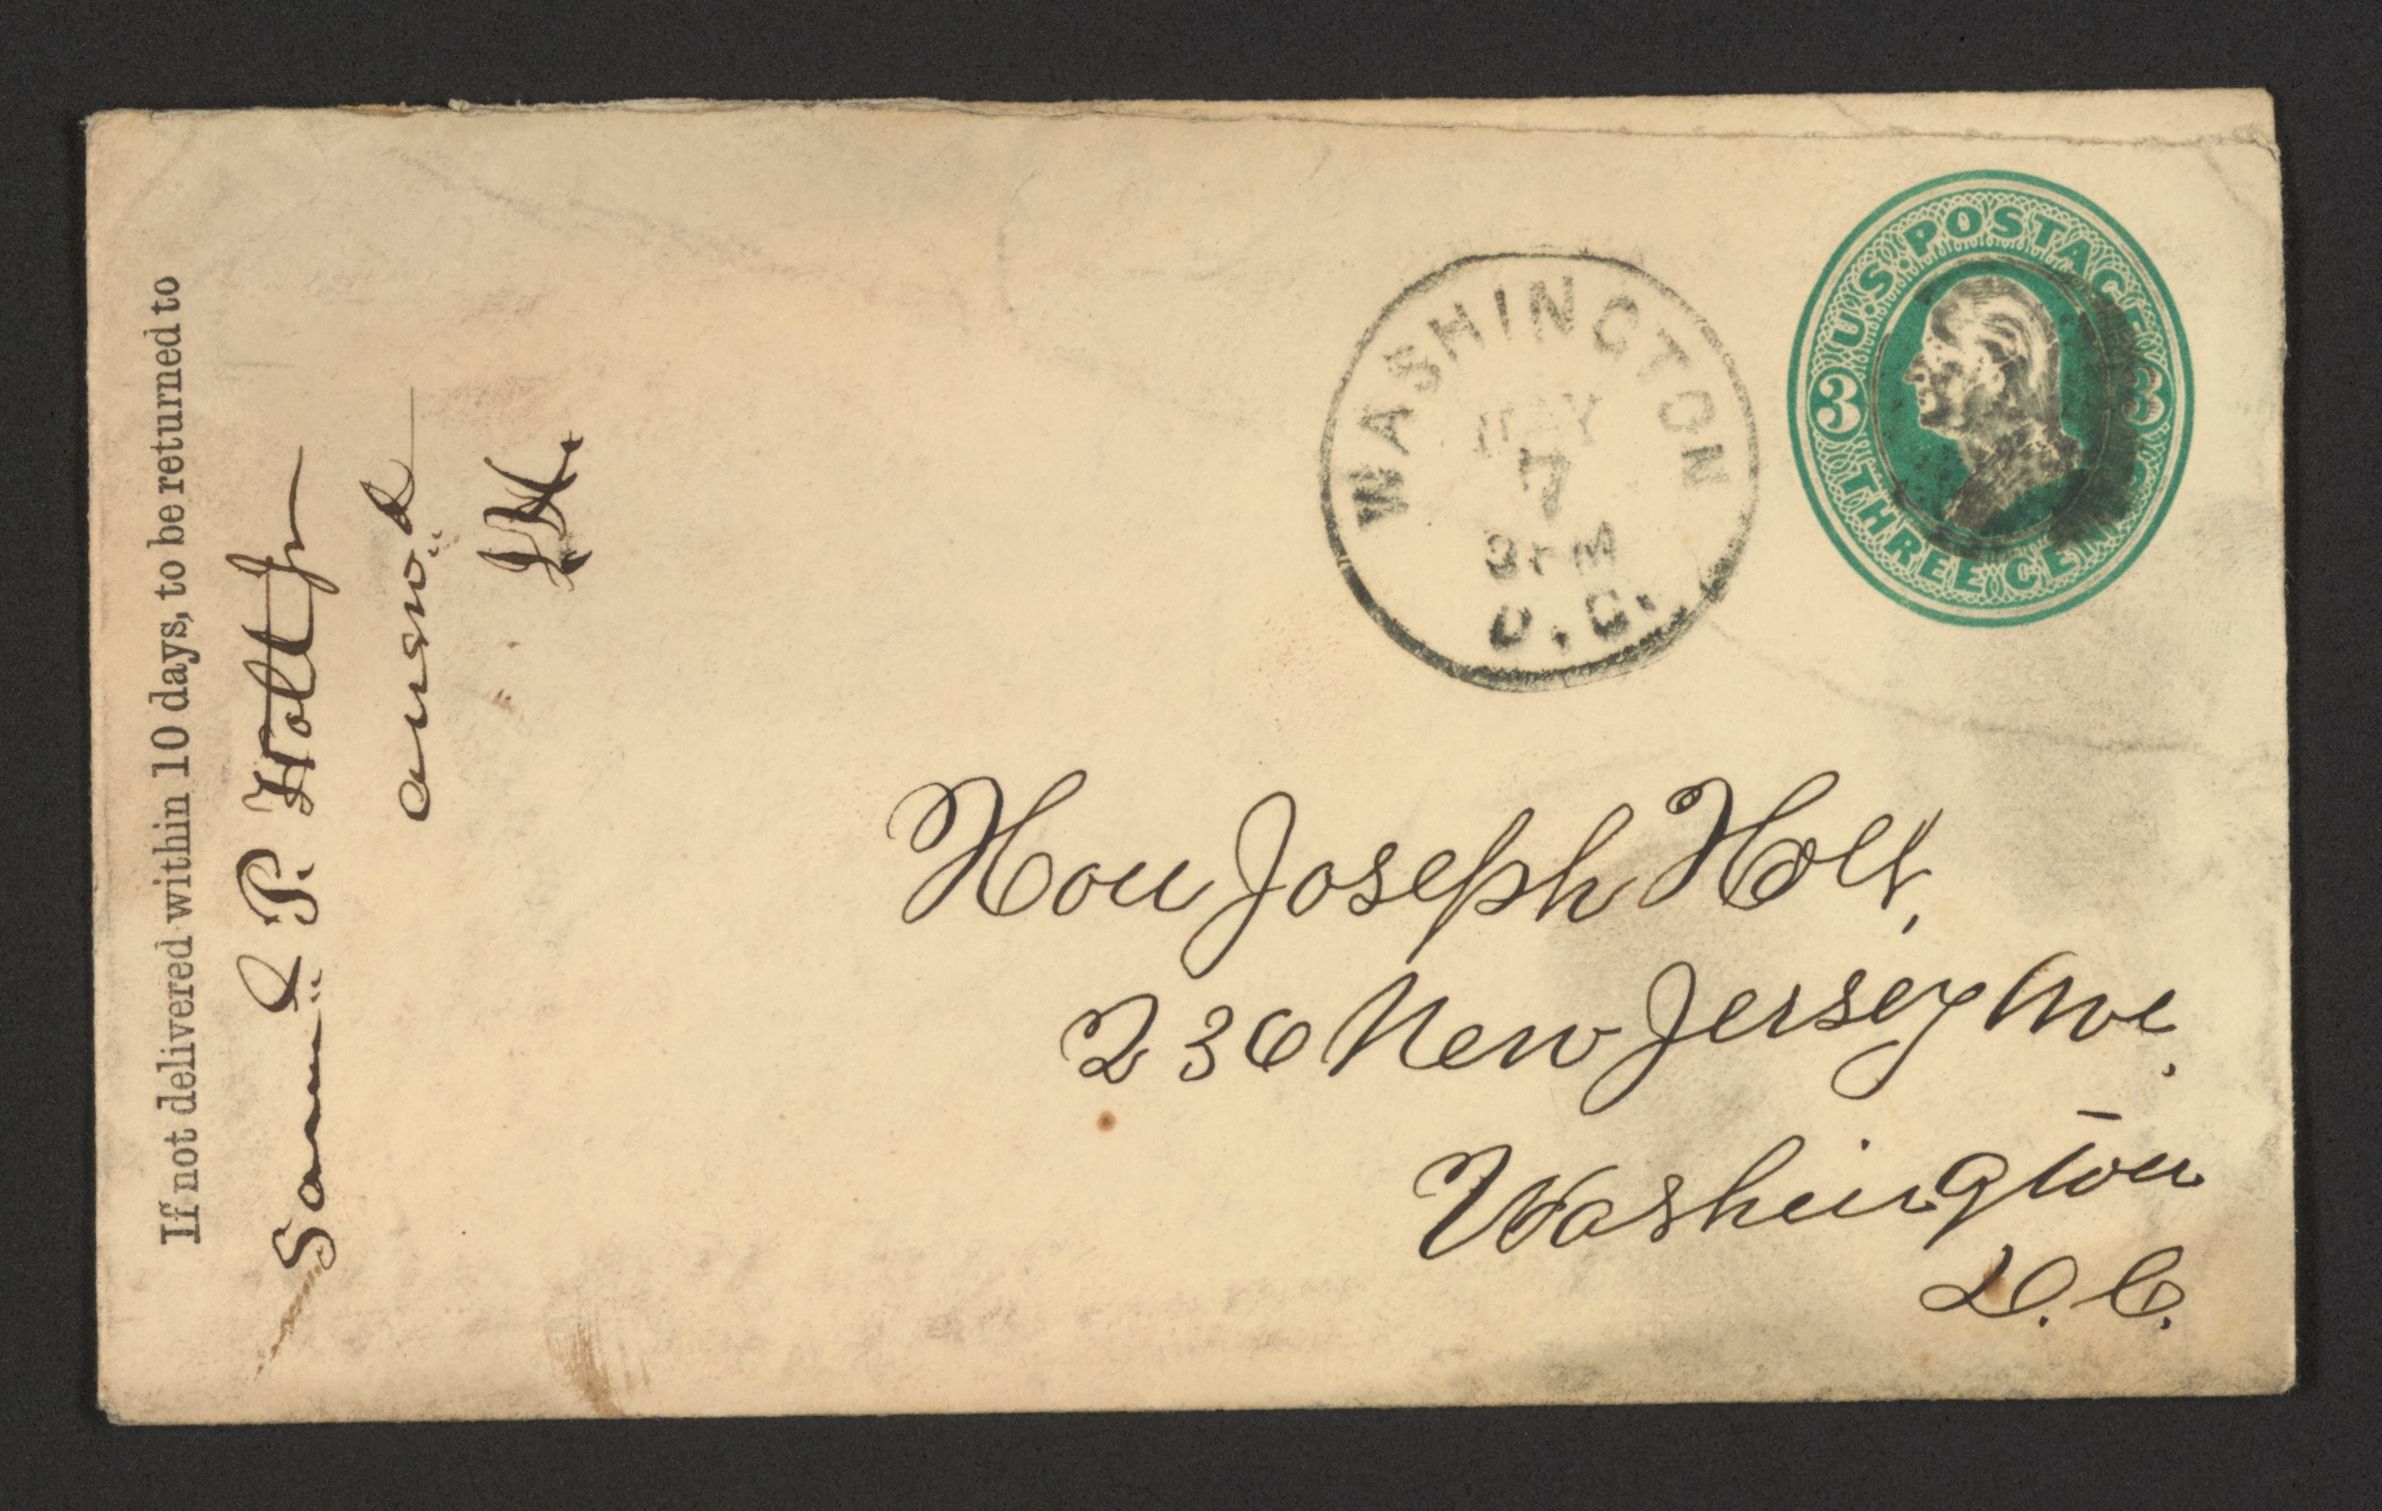 If not delivered within 10 days, to be returned to
Saml P. Holt Jr
answd
WASHINGTON
MAY
7
D.C.
U.S. POSTAGE
3 3
THREE CENTS
Hon Joseph Holt,
236 New Jersey Ave.
Washington
D.C.